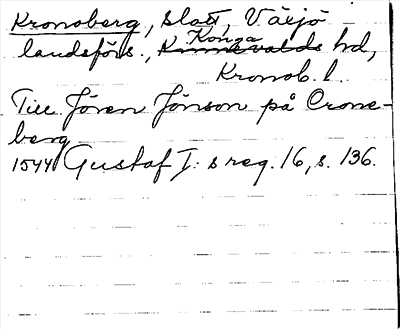 Kronoberg, slott, Växjö
landsförs., Kinnevalds hd,
Konga
Kronob. l.
Till Jören Jönson på Crone-
berg
1544 Gustaf I:s reg. 16, s. 136.